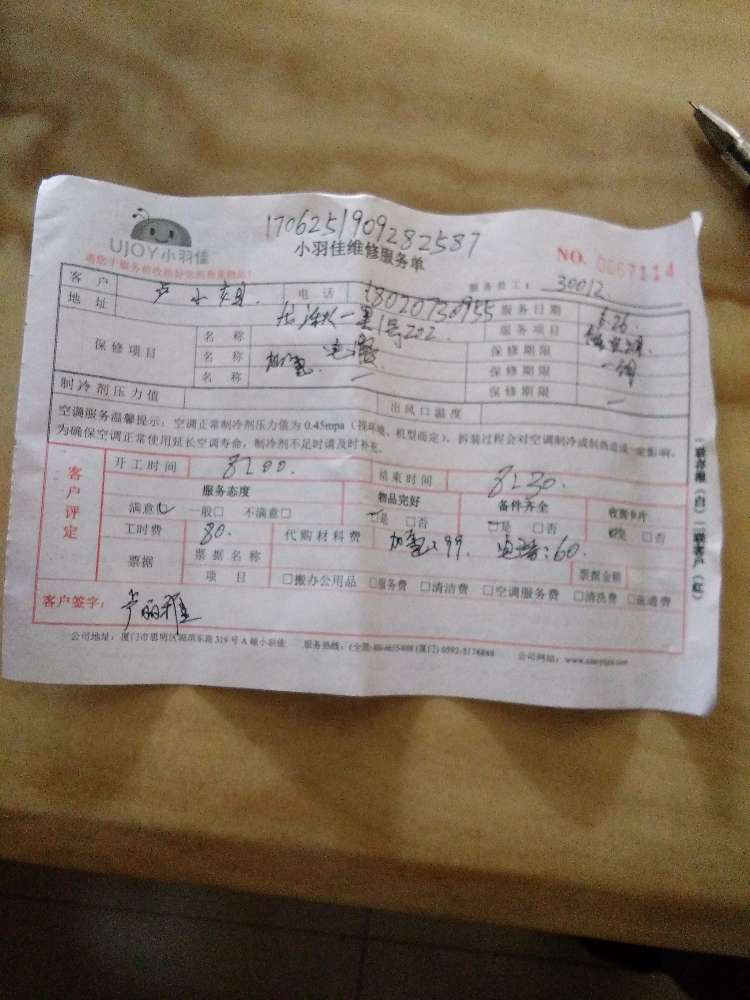 1706251909282587
UJOY小羽佳
小羽佳维修服务单
NO. 0067114
请您于服务前收拾好您的贵重物品!
服务员工: 30012
客户 卢小姐 电话 18020730955 服务日期 6.26
地址 一里1号202 服务项目
保修项目 名称 保修期限
名称 加氟 保修期限
名称 保修期限
制冷剂压力值 出风口温度
空调服务温馨提示: 空调正常制冷剂压力值为 0.45mpa (视环境、机型而定), 拆装过程会对空调制冷或制热造成一定影响,
为确保空调正常使用延长空调寿命, 制冷剂不足时请及时补充。
客户评定
开工时间 8:00 结束时间 8:30
服务态度 物品完好 备件齐全 收费卡片
满意 一般□ 不满意□ □是 □否 □是 □否 □是 □否
工时费 80. 代购材料费 加氟:99. 电容:60.
票据 票据名称 票据金额
项目 □搬办公用品 □服务费 □清洁费 □空调服务费 □清洗费 □交通费
客户签字: 卢丽雅
公司地址: 厦门市思明区湖滨东路 319 号 A 幢小羽佳 服务热线: (厦门) 0592-5178888 公司网站:
一联存根(白) 二联客户(红)